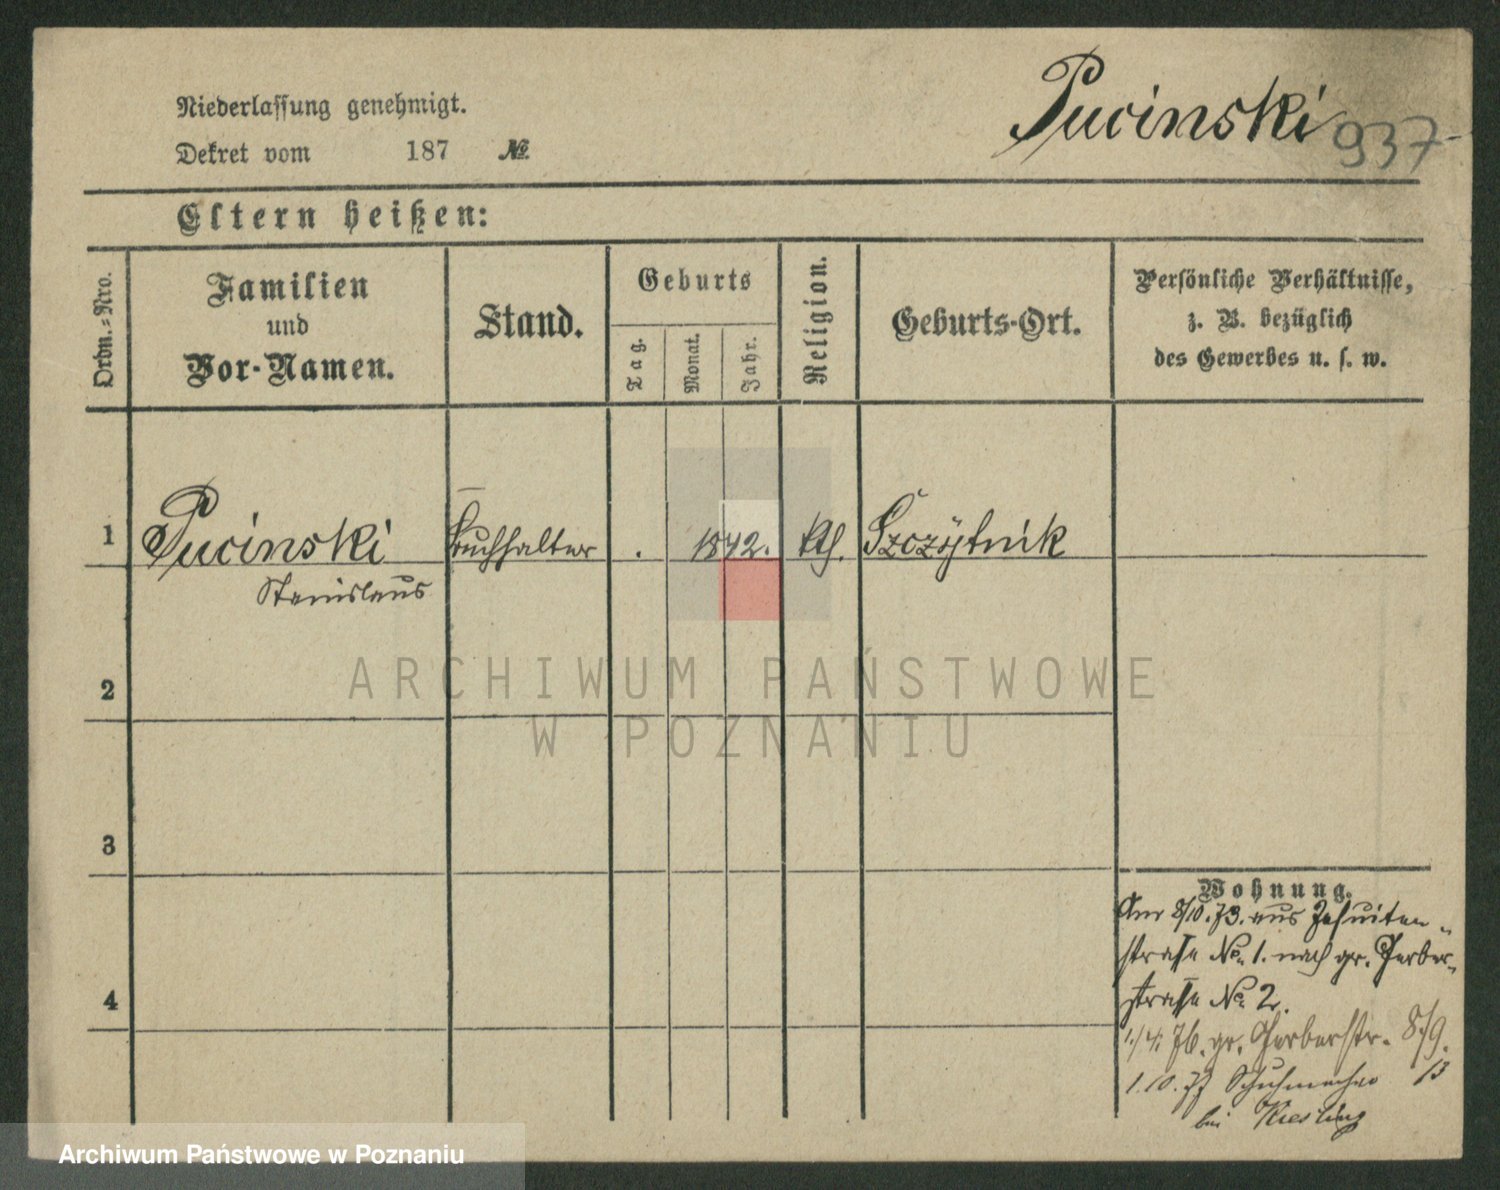 Niederlassung genehmigt.
Dekret vom 187 №
Pucinski 937
Eltern heißen:
Ordn.-Nro.
Familien
und
Vor-Namen.
Stand.
Geburts
Tag.
Monat.
Jahr.
Religion.
Geburts-Ort.
Persönliche Verhältnisse,
z. B. bezüglich
des Gewerbes u. s. w.
1 Pucinski Buchhalter . 1842. kth. Szczÿtnik
Stanislaus
2
3
4
Wohnung.
Am 8/10. 73. aus Jesuiten-
straße No. 1. nach gr. Gerber-
straße No. 2.
1/4. 76. gr. Gerberstr. 8/9.
1.10.77 Schuhmacher 13
bei Kiesling
ARCHIWUM PAŃSTWOWE
W POZNANIU
Archiwum Państwowe w Poznaniu